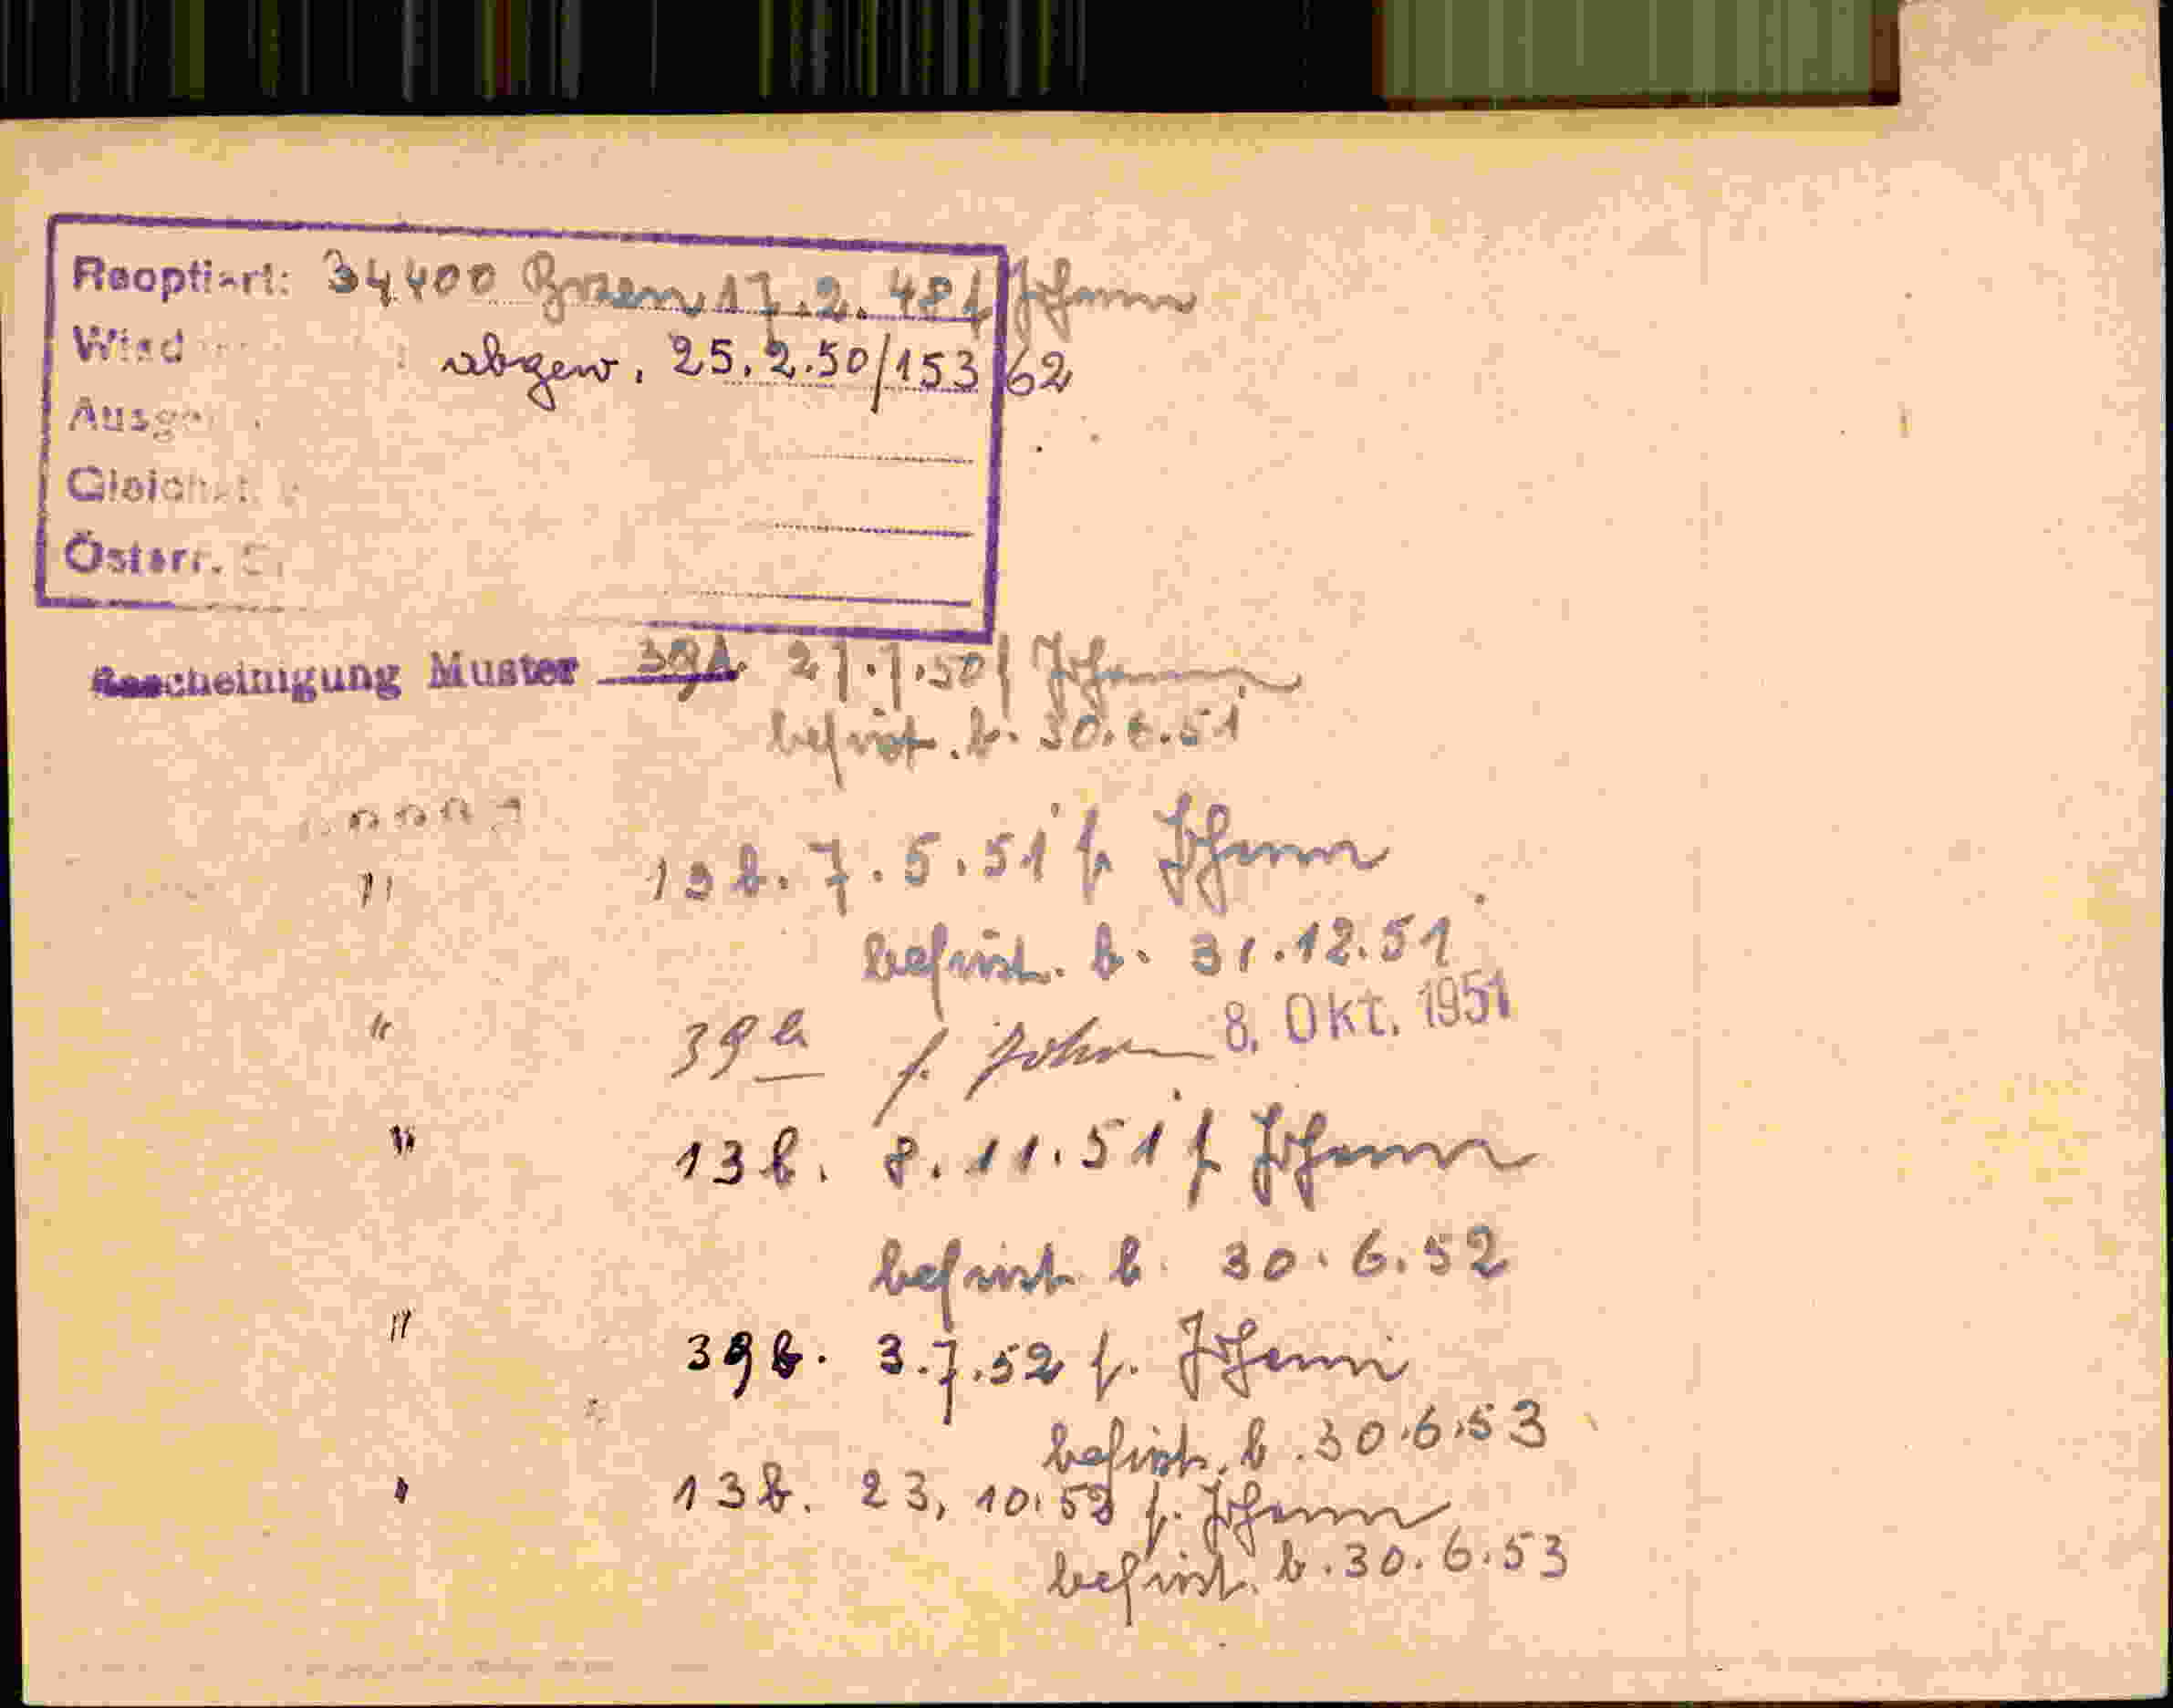 Reoptiert: 34400 Bozen 17.2.48 f Johann
Wied abgew. 25.2.50/15362
Ausge
Gleich
Österr. S
Bescheinigung Muster 39A. 27.7.50 f Johann
befrist. b. 30.6.51
" 13b. 7.5.51 f. Johann
befrist. b. 31.12.51
" 39a f. Johann 8. Okt. 1951
" 13b. 8.11.51 f Johann
befrist b. 30.6.52
" 39b. 3.7.52 f. Johann
befrist. b. 30.6.53
" 13b. 23.10.52 f. Johann
befrist. b. 30.6.53